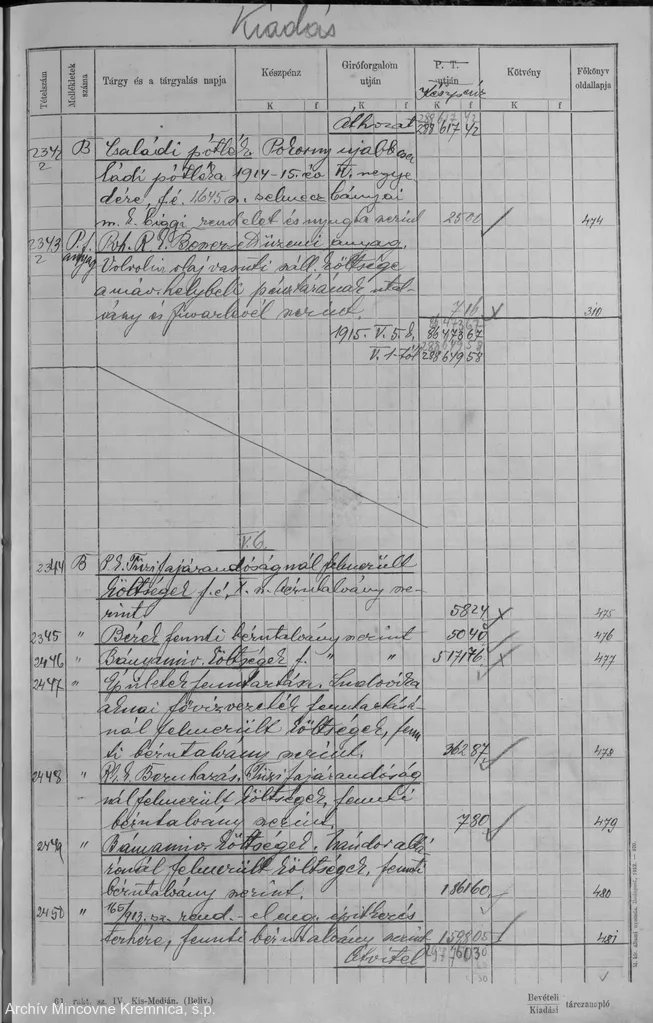 Kiadás
Tételszám Mellékletek száma Tárgy és a tárgyalás napja Készpénz Giróforgalom utján P. T. utján Készpénz Kötvény Főkönyv oldallapja
K f K f K f K f
Áthozat 288617 42
2342/2 B Családi pótlék Pokorny ujabb csa-
ládi pótléka 1914-15. év II. negye
dére, f. é. 4645 sz. selmecbányai
m. k. biggi. rendelet és nyugta szerint 25 00 474
2343/2 P. f. anyag
Volvolin olaj vasuti száll. költsége
a máv. helybeli pénztárának utal-
vány és fuvarlevél szerint. 7 16 310
1915. V. 5. 86473 67
V. 1-től 288649 58
V. 6.
2344 B P. k. Tüzifajárandóságnál felmerült
költségek f. é. X. sz. bérutalvány sze-
rint 58 24 475
2345 " Bérek fennti bérutalvány szerint 50 40 476
2446 " Bányamiv. költségek f. " " 5171 76 477
2447 " Épületek fenntartása. Ludovika
aknai fővizvezeték fenntartásá-
nál felmerült költségek, fenn-
ti bérutalvány szerint. 362 87 478
2448 " Tüzifajárandóság
nál felmerült költségek, fennti
bérutalvány szerint. 7 80 479
2449 " Bányamiv. költségek. Nándor altá-
rónál felmerült költségek, fennti
bérutalvány szerint. 1861 60 480
2450 " 165/913. sz. rend. - el eng. épitkezés
terhére, fennti bérutalvány szerint 1598 05 481
Átvitel
61. rakt. sz. IV. Kis-Medián. (Beliv.)
Bevételi
Kiadási tárczanapló
Archív Mincovne Kremnica, š.p.